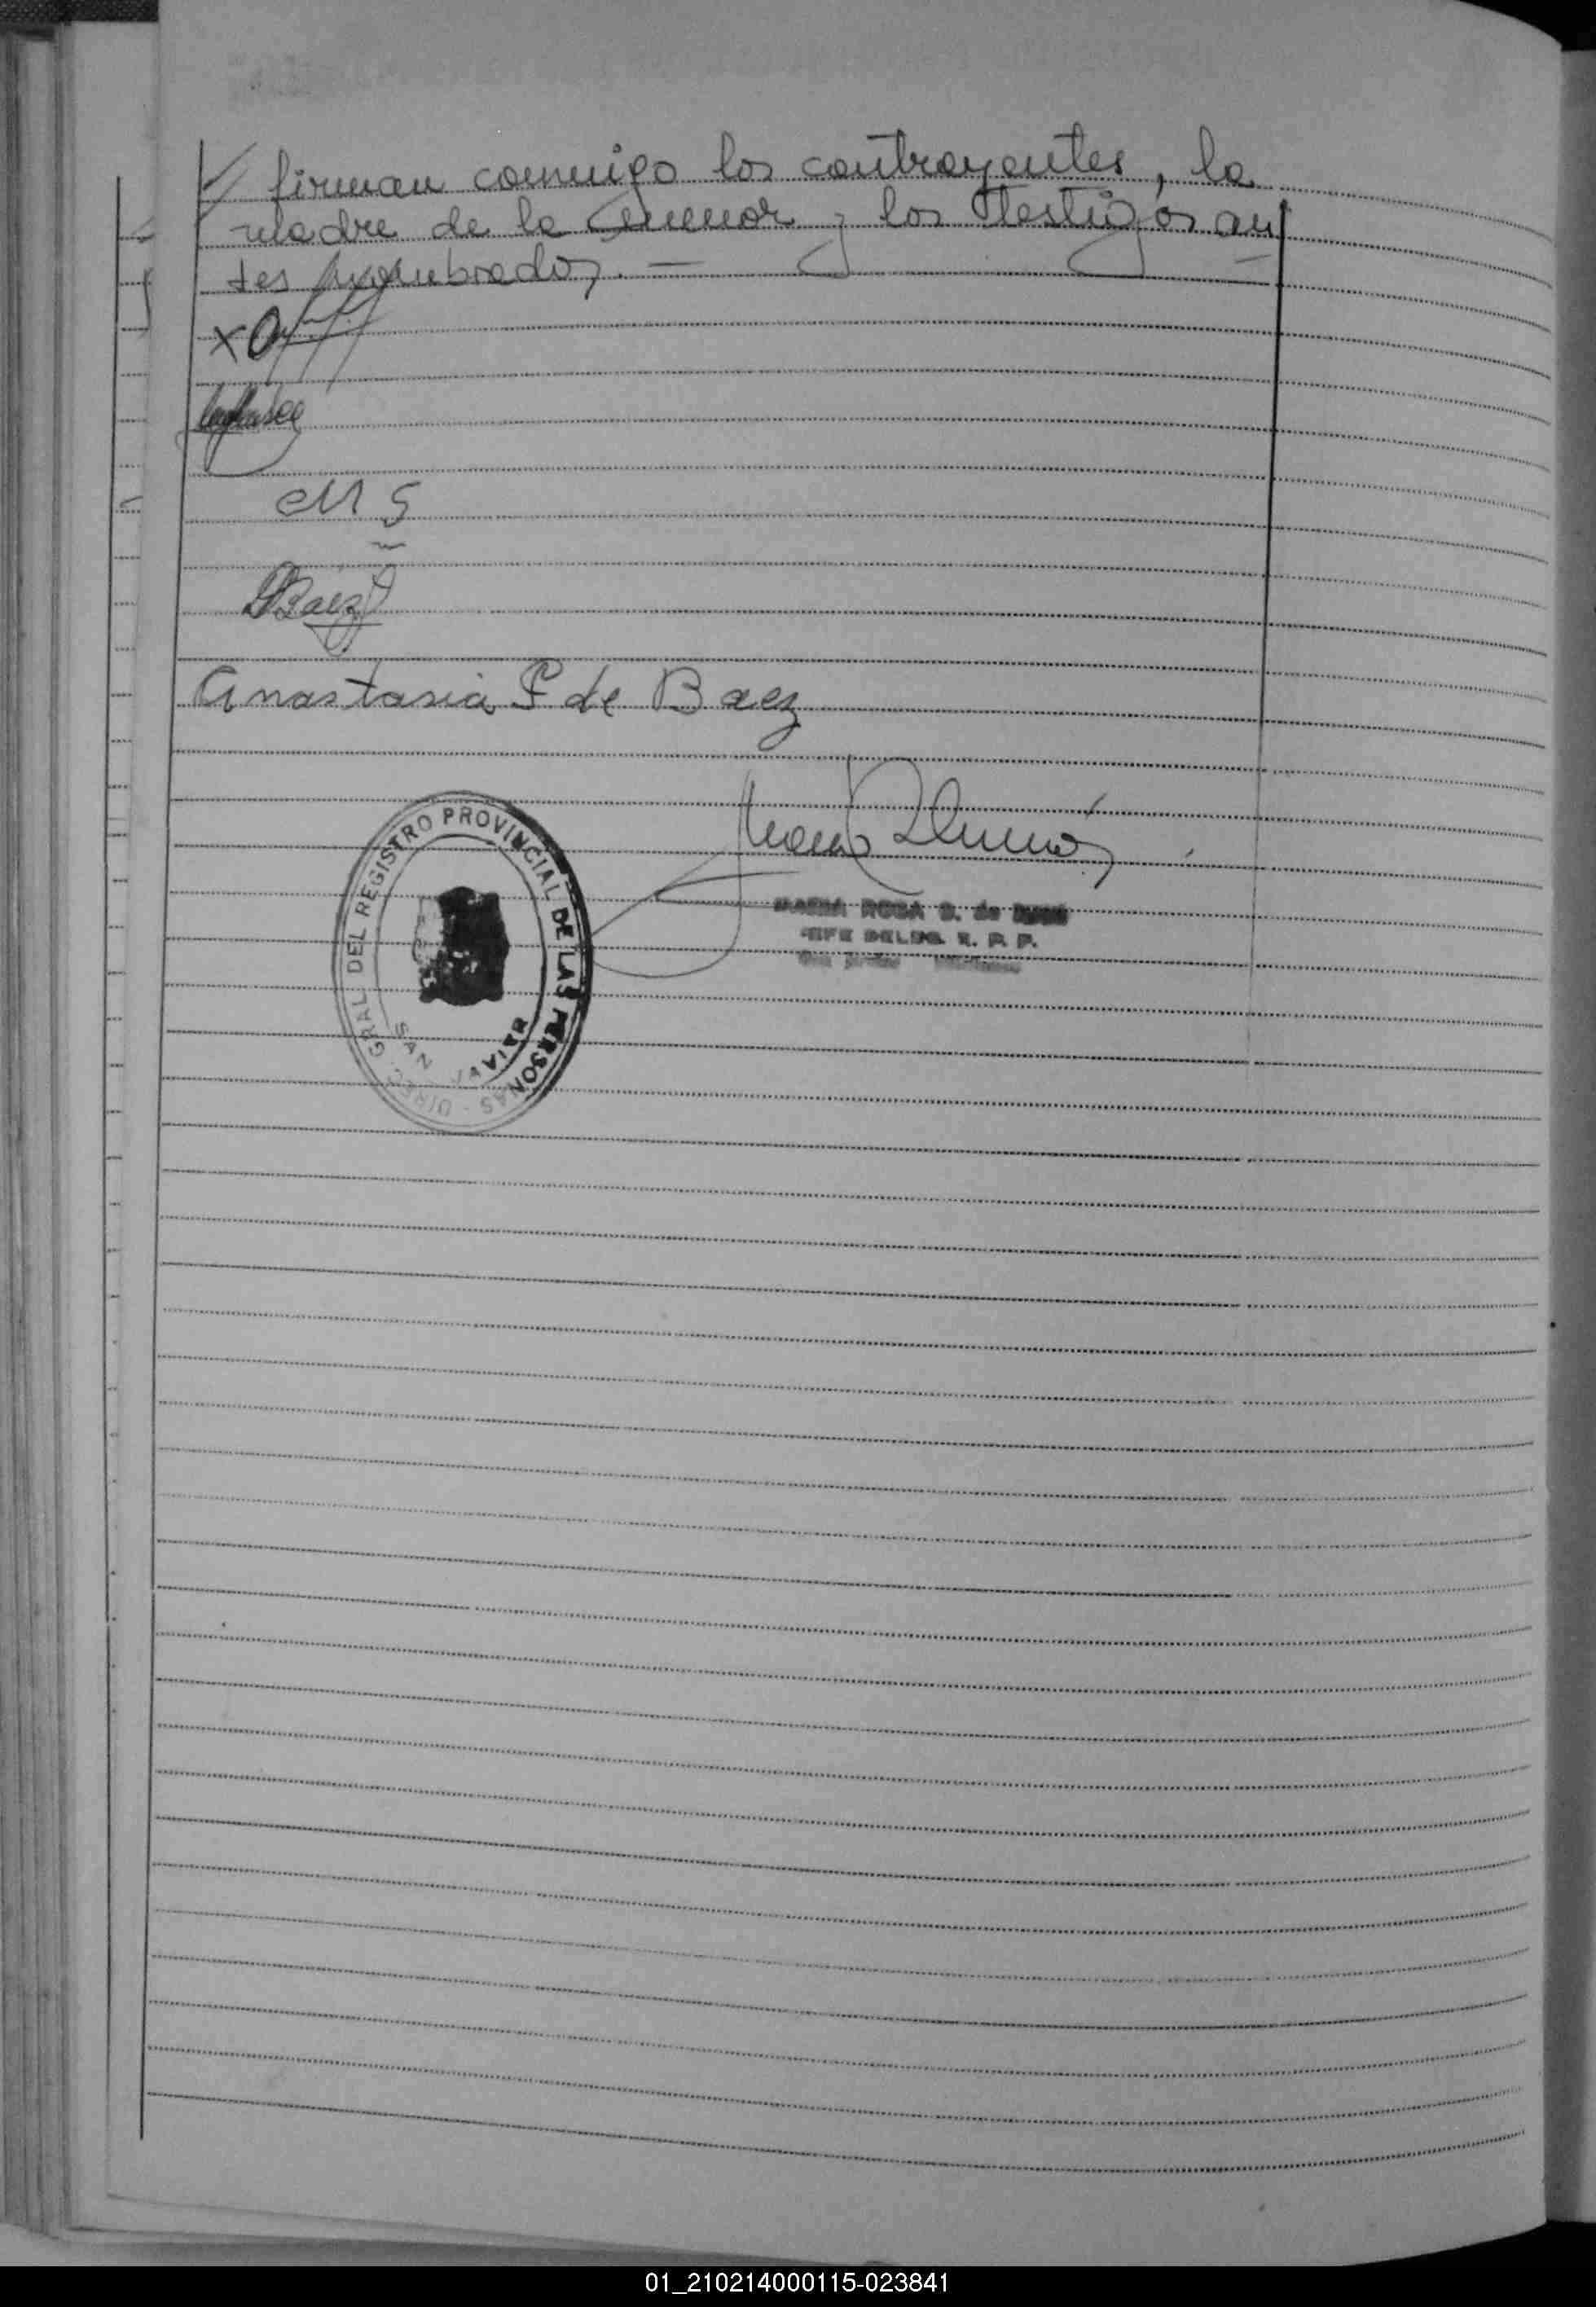 firman conmigo los contrayentes, la
madre de la menor y los testigos an
tes nombrados. —
M S
Baez
Anastasia F de Baez
DIREC. GRAL. DEL REGISTRO PROVINCIAL DE LAS PERSONAS
SAN JAVIER
MARIA ROSA D. de
JEFE DELEG. R. P. P.
01_210214000115-023841